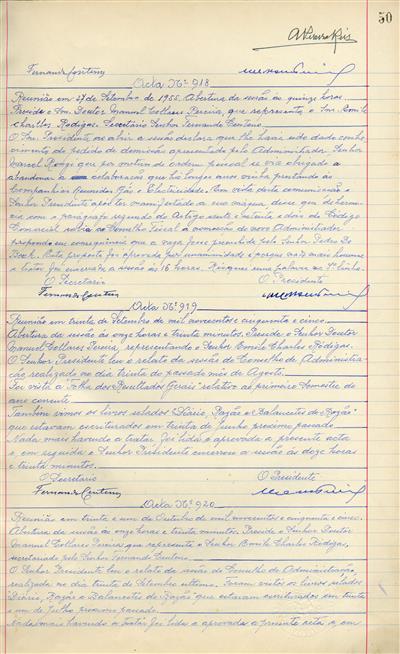 50
Acta Nº 918
Reunião em 27 de Setembro de 1955. Abertura da sessão às quinze horas.
Preside o Snr. Doutor Manuel Pereira, que representa o Snr. Emile
Charles Secretário Senhor Fernando Centeno.
O Snr. Presidente ao abrir a sessão declara que lhe havia sido dado conhe-
cimento do pedido de demissão apresentado pelo Administrador Senhor
Marcel que por motivo de ordem pessoal se via obrigado a
abandonar a colaboração que há longos anos vinha prestando às
Companhias Reunidas Gás e Electricidade. Em vista desta comunicação o
Senhor Presidente após ter manifestado a sua mágoa, disse que de harmo-
nia com o parágrafo segundo do Artigo cento e setenta e dois do Código
Comercial cabia ao Conselho Fiscal a nomeação do novo Administrador
propondo em consequência que a vaga fosse preenchida pelo Senhor Pedro
Esta proposta foi aprovada por unanimidade e porque nada mais houvesse
a tratar foi encerrada a sessão às 16 horas. Risquei uma palavra na linha.
O Secretário O Presidente
Fernando Centeno
Acta Nº 919
Reunião em trinta de Setembro de mil novecentos e cinquenta e cinco.
Abertura da sessão às onze horas e trinta minutos. Preside o Senhor Doutor
Manuel Pereira, representando o Senhor Emile Charles
O Senhor Presidente leu o relato da sessão do Conselho de Administra-
ção realizada no dia trinta do passado mês de Agosto.
Foi vista a "Folha dos Resultados Gerais" relativo ao primeiro Semestre do
ano corrente.
Também vimos os livros selados "Diário, Razão e Balancetes do Razão"
que estavam escriturados em trinta de Junho próximo passado.
Nada mais havendo a tratar foi lida e aprovada a presente acta
e, em seguida o Senhor Presidente encerrou a sessão às doze horas
e trinta minutos.
O Secretário O Presidente
Fernando Centeno
Acta Nº 920
Reunião em trinta e um de Outubro de mil novecentos e cinquenta e cinco.
Abertura da sessão às onze horas e trinta minutos. Preside o Senhor Doutor
Manuel Pereira que representa o Senhor Emile Charles
secretariado pelo Senhor Fernando Centeno.
O Senhor Presidente leu o relato da sessão do Conselho de Administração,
realizada no dia trinta de Setembro último. Foram vistos os livros selados
"Diário, Razão e Balancetes do Razão" que estavam escriturados em trinta
e um de Julho próximo passado.
Nada mais havendo a tratar foi lida e aprovada a presente acta e, em